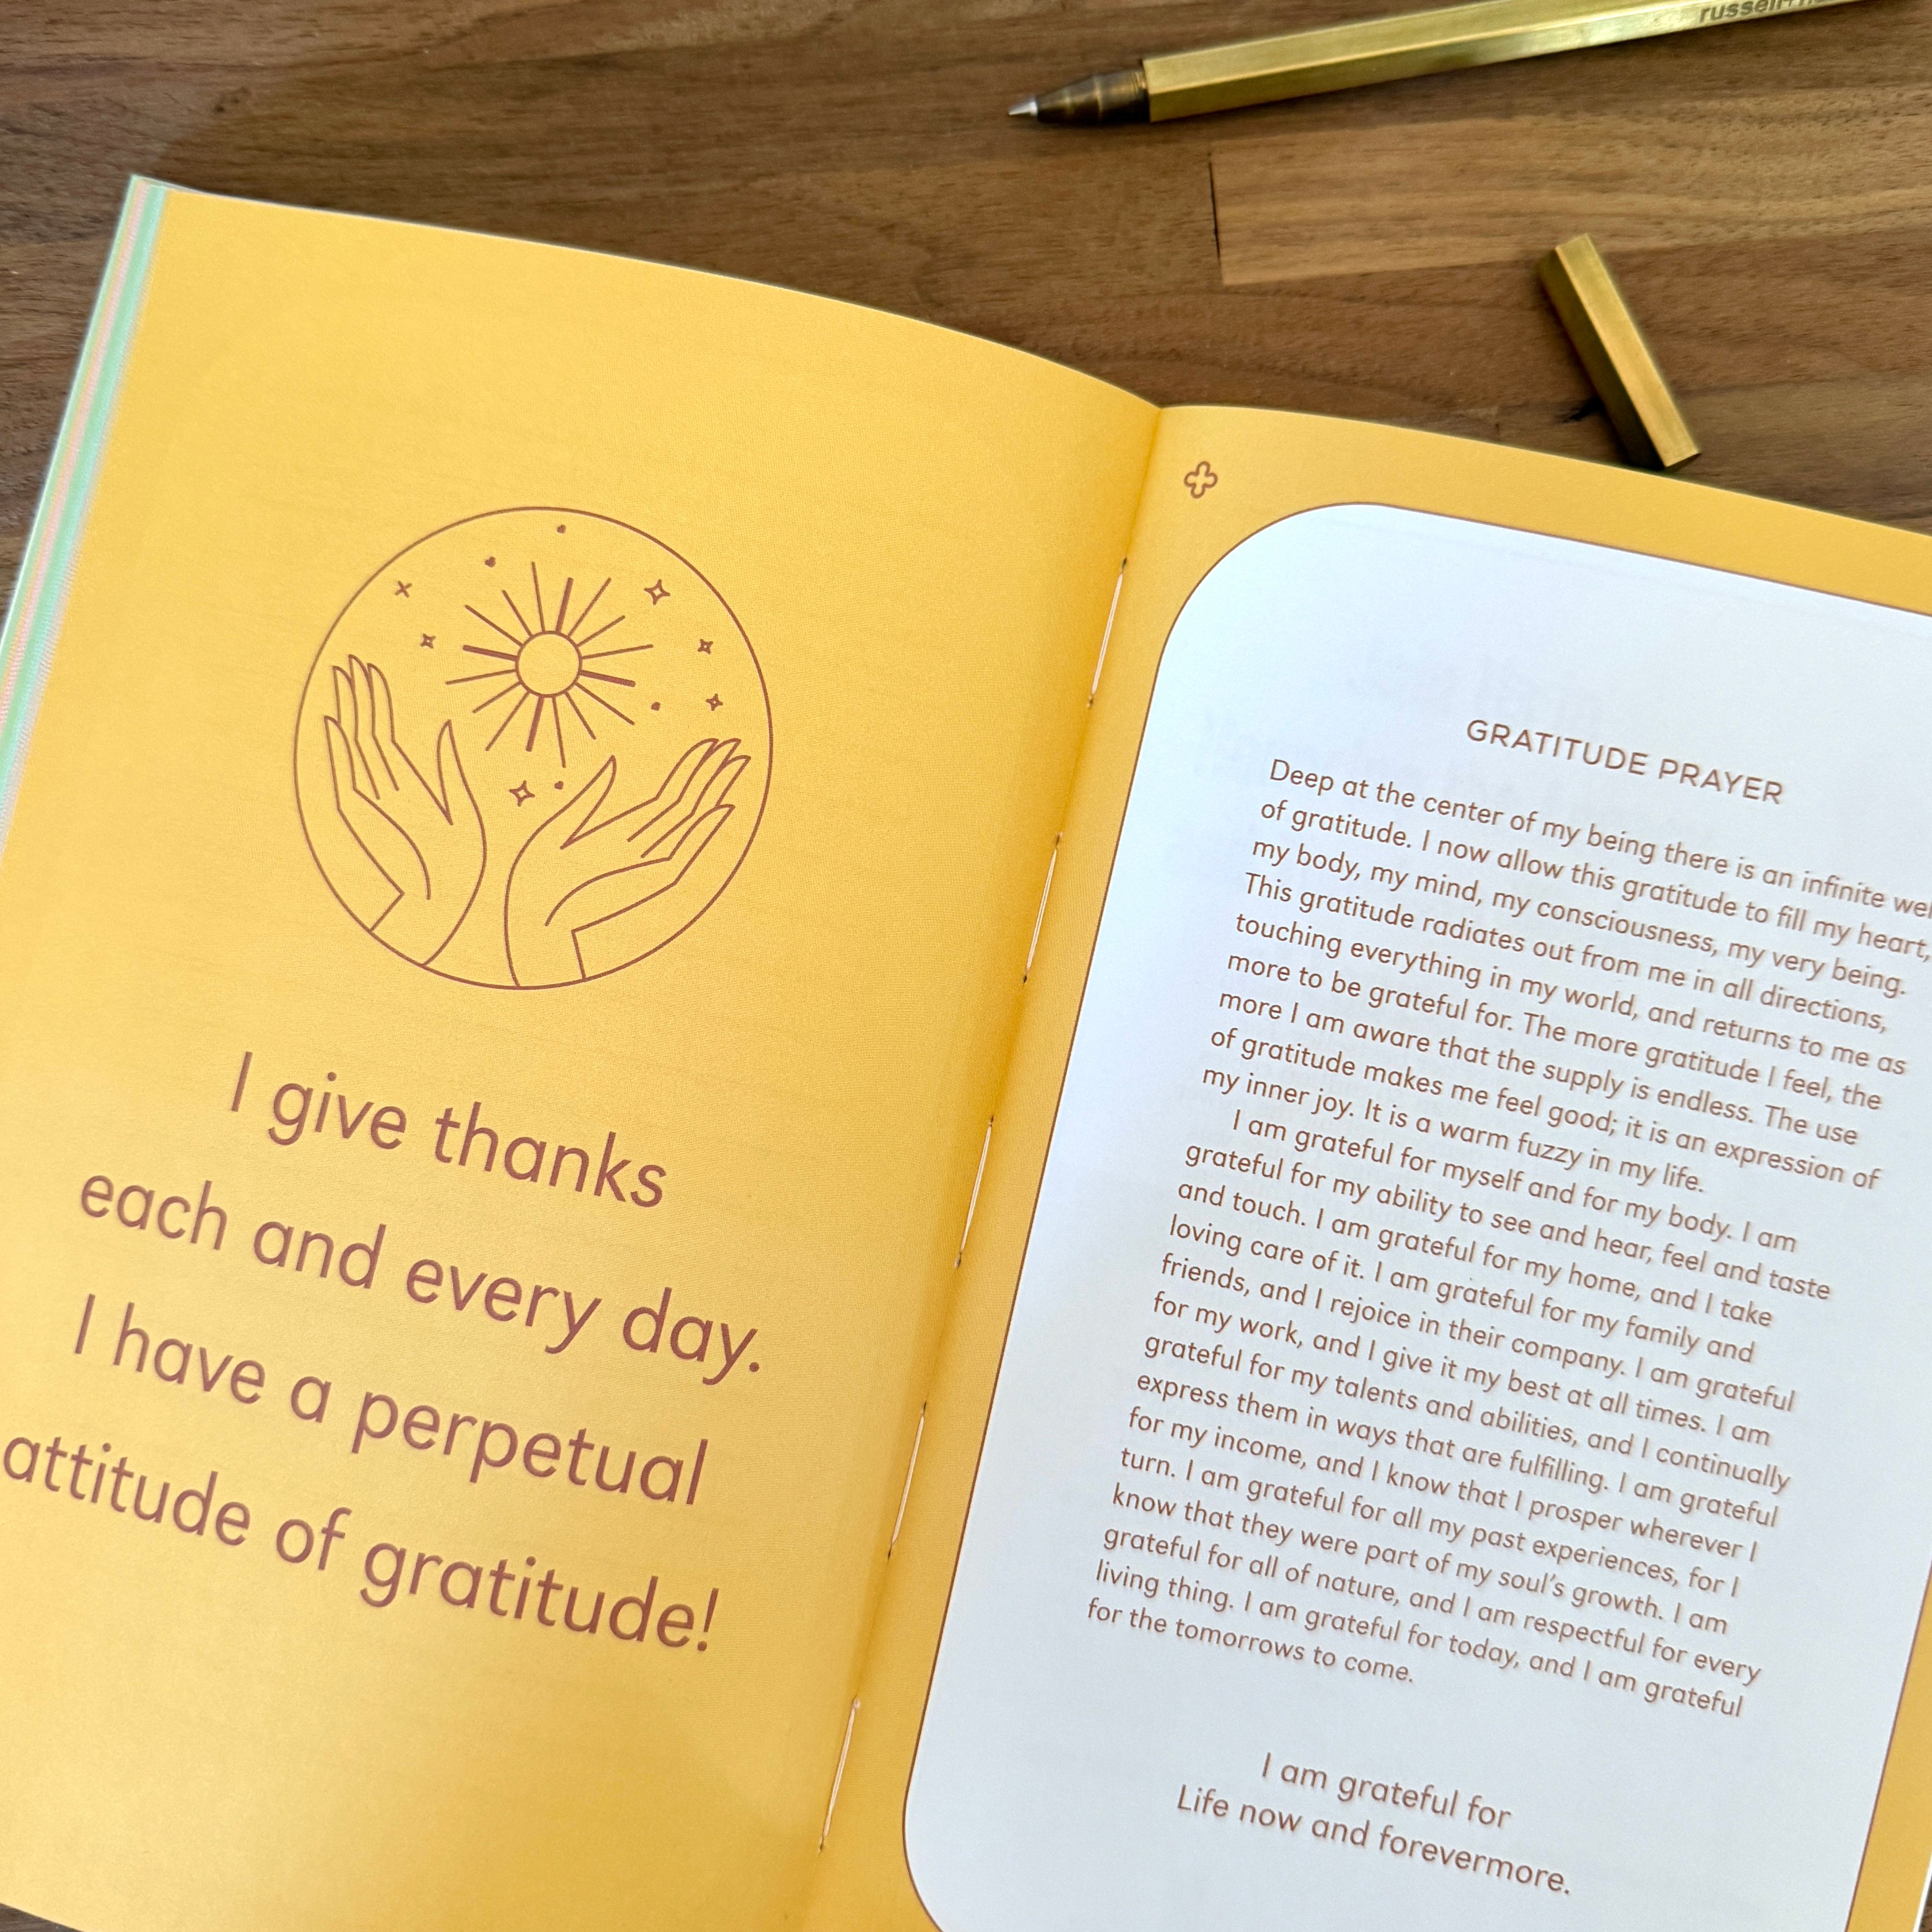 I give thanks
each and every day.
I have a perpetual
attitude of gratitude!
GRATITUDE PRAYER
Deep at the center of my being there is an infinite
of gratitude. I now allow this gratitude to fill my heart,
my body, my mind, my consciousness, my very being.
This gratitude radiates out from me in all directions,
touching everything in my world, and returns to me as
more to be grateful for. The more gratitude I feel, the
more I am aware that the supply is endless. The use
of gratitude makes me feel good; it is an expression of
my inner joy. It is a warm fuzzy in my life.
I am grateful for myself and for my body. I am
grateful for my ability to see and hear, feel and taste
and touch. I am grateful for my home, and I take
loving care of it. I am grateful for my family and
friends, and I rejoice in their company. I am grateful
for my work, and I give it my best at all times. I am
grateful for my talents and abilities, and I continually
express them in ways that are fulfilling. I am grateful
for my income, and I know that I prosper wherever I
turn. I am grateful for all my past experiences, for I
know that they were part of my soul's growth. I am
grateful for all of nature, and I am respectful for every
living thing. I am grateful for today, and I am grateful
for the tomorrows to come.
I am grateful for
Life now and forevermore.